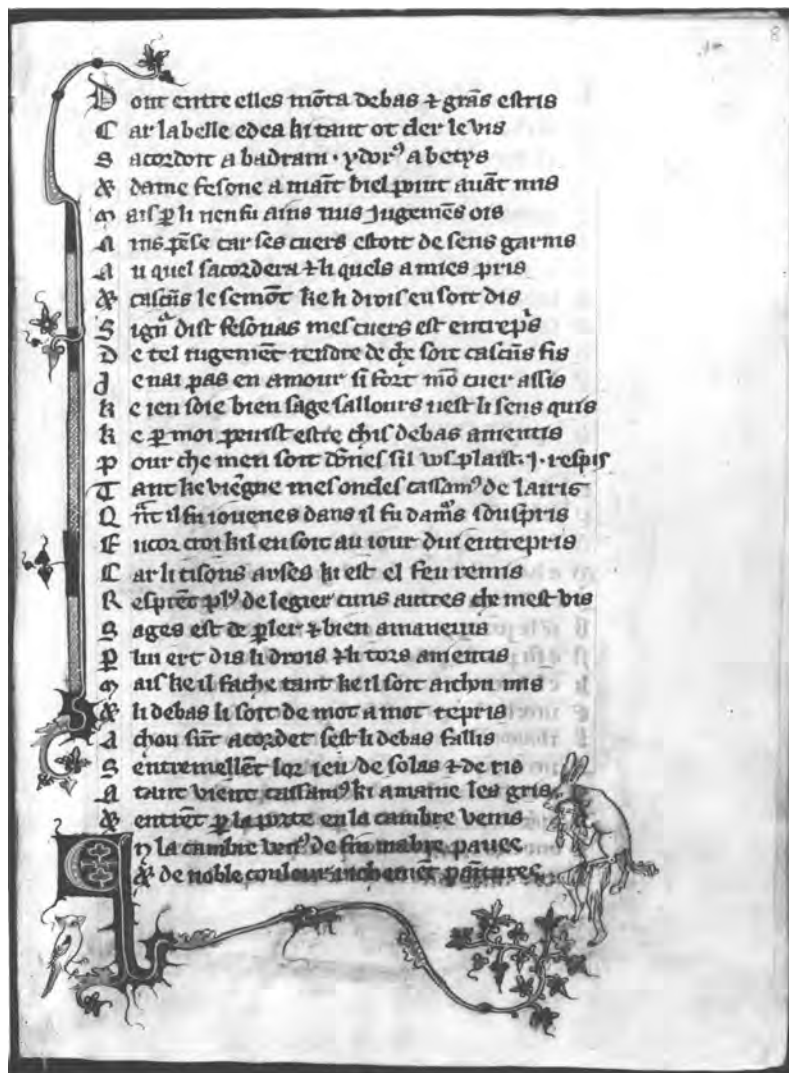 Dont entre elles mōta debas ⁊ grās estris
Car la belle edea ki tant ot cler le vis
Sacordoit a badrain · ydor⁹ a betys
& dame fesone a marc̄ biel point auāt mis
Mais ꝑ li nen fu ains nus jugemēs ois
Ains pēse car ses cuers estoit de sens garnis
Au quel sacordera ⁊ li quels a mies pris
& cascūs le semōt ke li drois en soit dis
Sign̄ dist fesonas mes cuers est entrep̄s
De tel iugemēt rendre de che soit cascūs fis
Je nai pas en amour si fort mō cuer assis
Ke ien soie bien sage sallours nest li sens quis
Ke ꝑ moi peuist estre chis debas amenris
Pour che men soit dōnes sil v⁹ plaist · j · respis
Tant ke viēgne mes oncles cassam⁹ de lairis
Qn̄t il fu iouenes dans il fu damōs souspris
Encor croi kil en soit au iour dui entrepris
Car li tisons auses ki est el feu remis
Resprēt pl⁹ de legier cuns autres che mest vis
Sages est de ꝑler ⁊ bien amaneuis
Ꝑ lui ert dis li drois ⁊ li tors amentis
Mais ke il sache tant ke il soit aichou mis
& li debas li soit de mot a mot repris
A chou sūt acordet sest li debas fallis
Sentremellēt lor ieu de solas ⁊ de ris
A tant vient cassam⁹ ki amaine les gris
& entrēt ꝑ la porte en la cambre venis
En la cambre ven⁹ de fin mabre pauee
& de noble coulour richemēt painturee
8